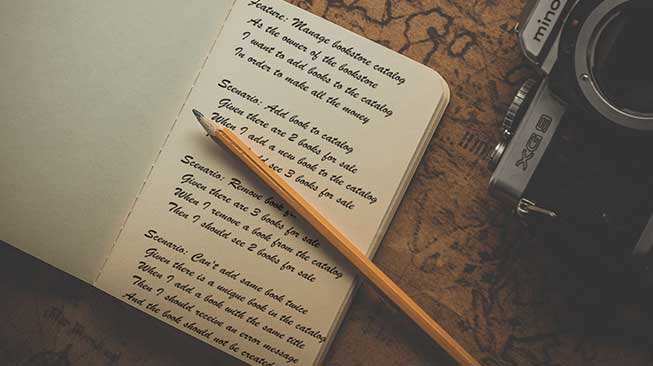 Feature: Manage bookstore catalog
As the owner of the bookstore
I want to add books to the catalog
In order to make all the money
Scenario: Add book to catalog
Given there are 2 books for sale
When I add a new book to the catalog
see 3 books for sale
Scenario: Remove book
Given there are 3 books for sale
When I remove a book from the catalog
Then I should see 2 books for sale
Scenario: Can't add same book twice
Given there is a unique book in the catalog
When I add a book with the same title
Then I should receive an error message
And the book should not be created
XG 9